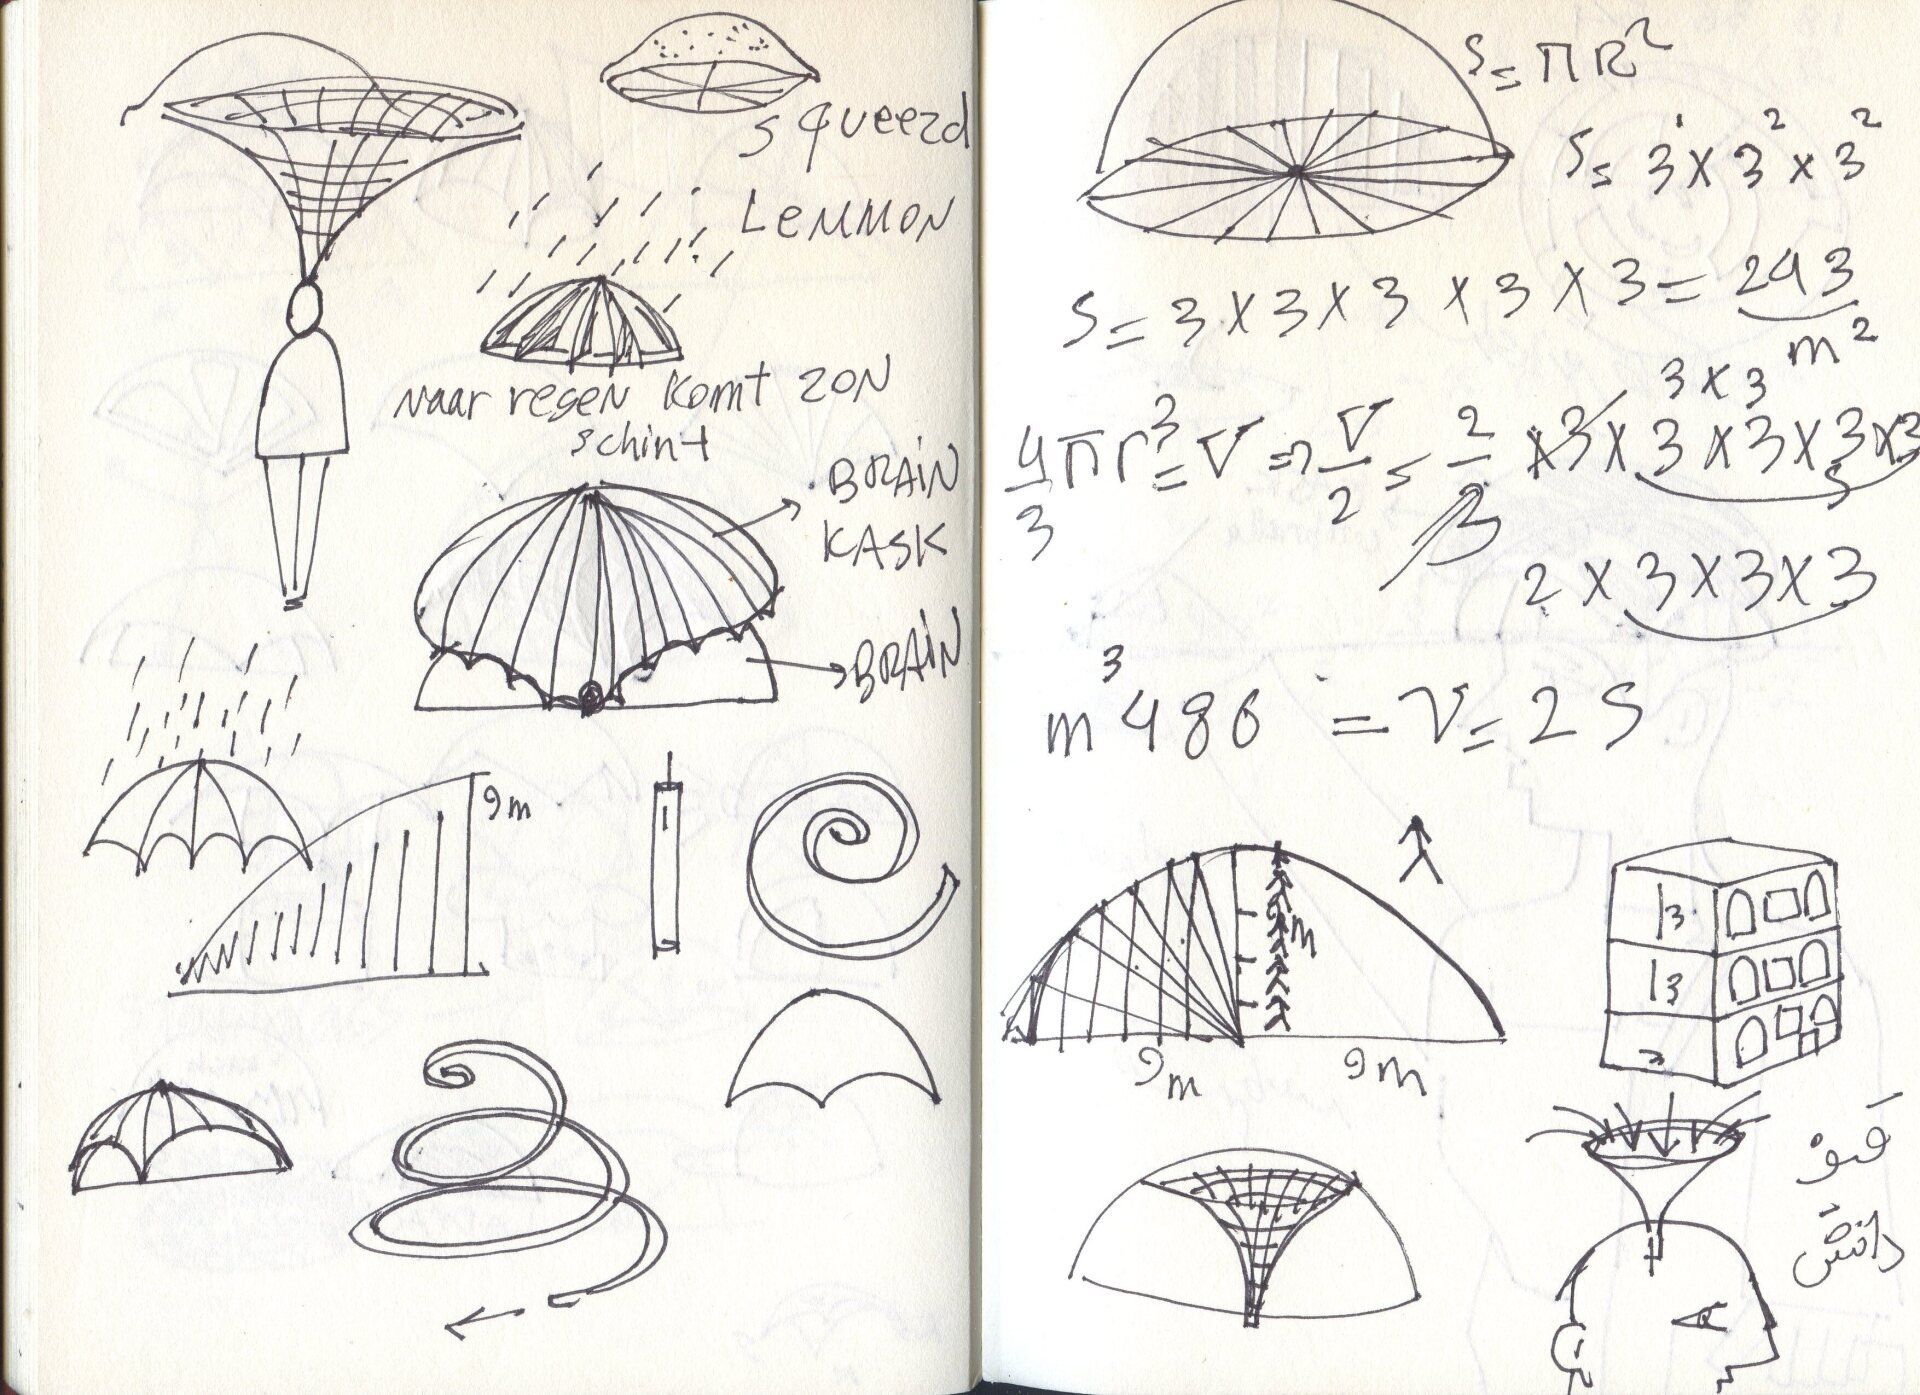 squeezd
LEMMON
naar regen komt ZON
schint
BRAIN
KASK
BRAIN
9m
S = π R²
S = 3 x 3² x 3²
S = 3 x 3 x 3 x 3 x 3 = 243
m²
3 x 3
4/3 π r³ = V => V/2 = 2/3 x 3 x 3 x 3 x 3 x 3
S
2 x 3 x 3 x 3
m³ 486 = V = 2 S
9m
9m 9m
3
3
3
قیف
دانش